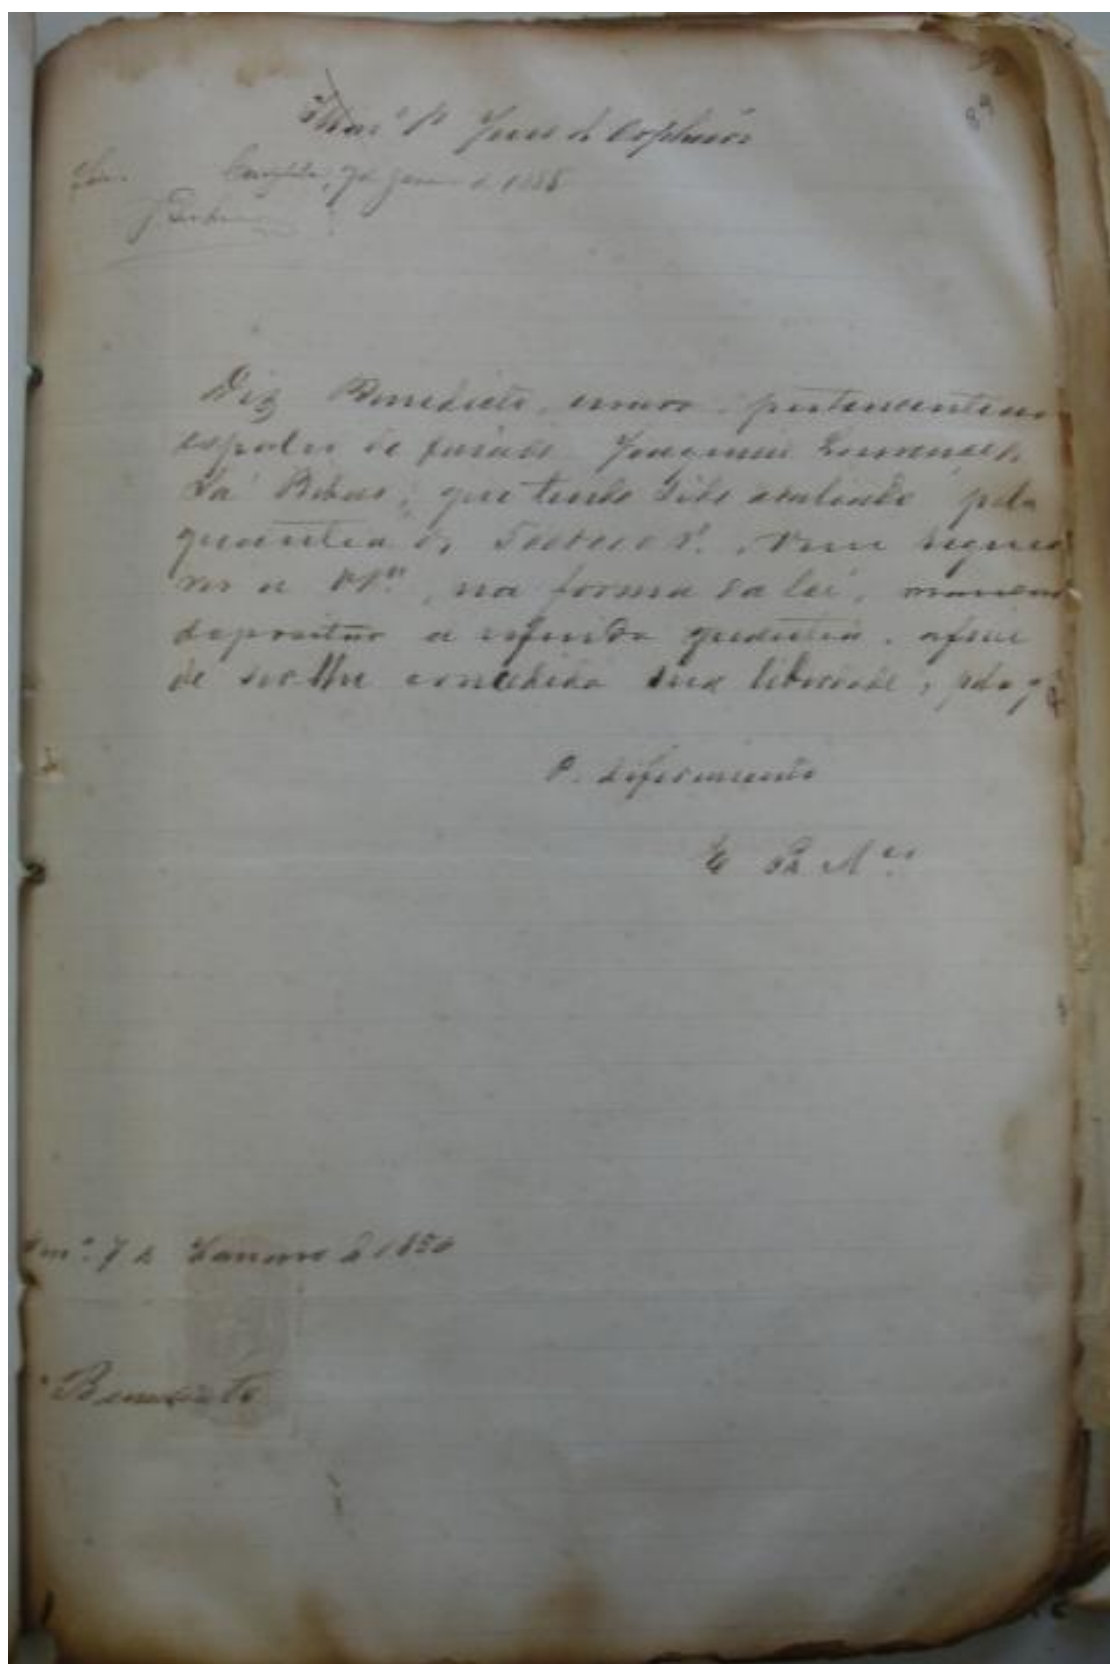 Illmo Sr Juiz de Orphãos
89
Sim. 7 de Janro de 1886
Diz Benedicto, escravo pertencente ao
espolio do finado Joaquim Lourenço de
Sá Ribas, que tendo sido avaliado pela
quantia de vem reque
rer a VSa, na forma da lei,
depositar a referida quantia, afim
de ser lhe concedida sua liberdade, pelo q
P. deferimento
E R Mce
7 de Janeiro de 1886
Benedicto